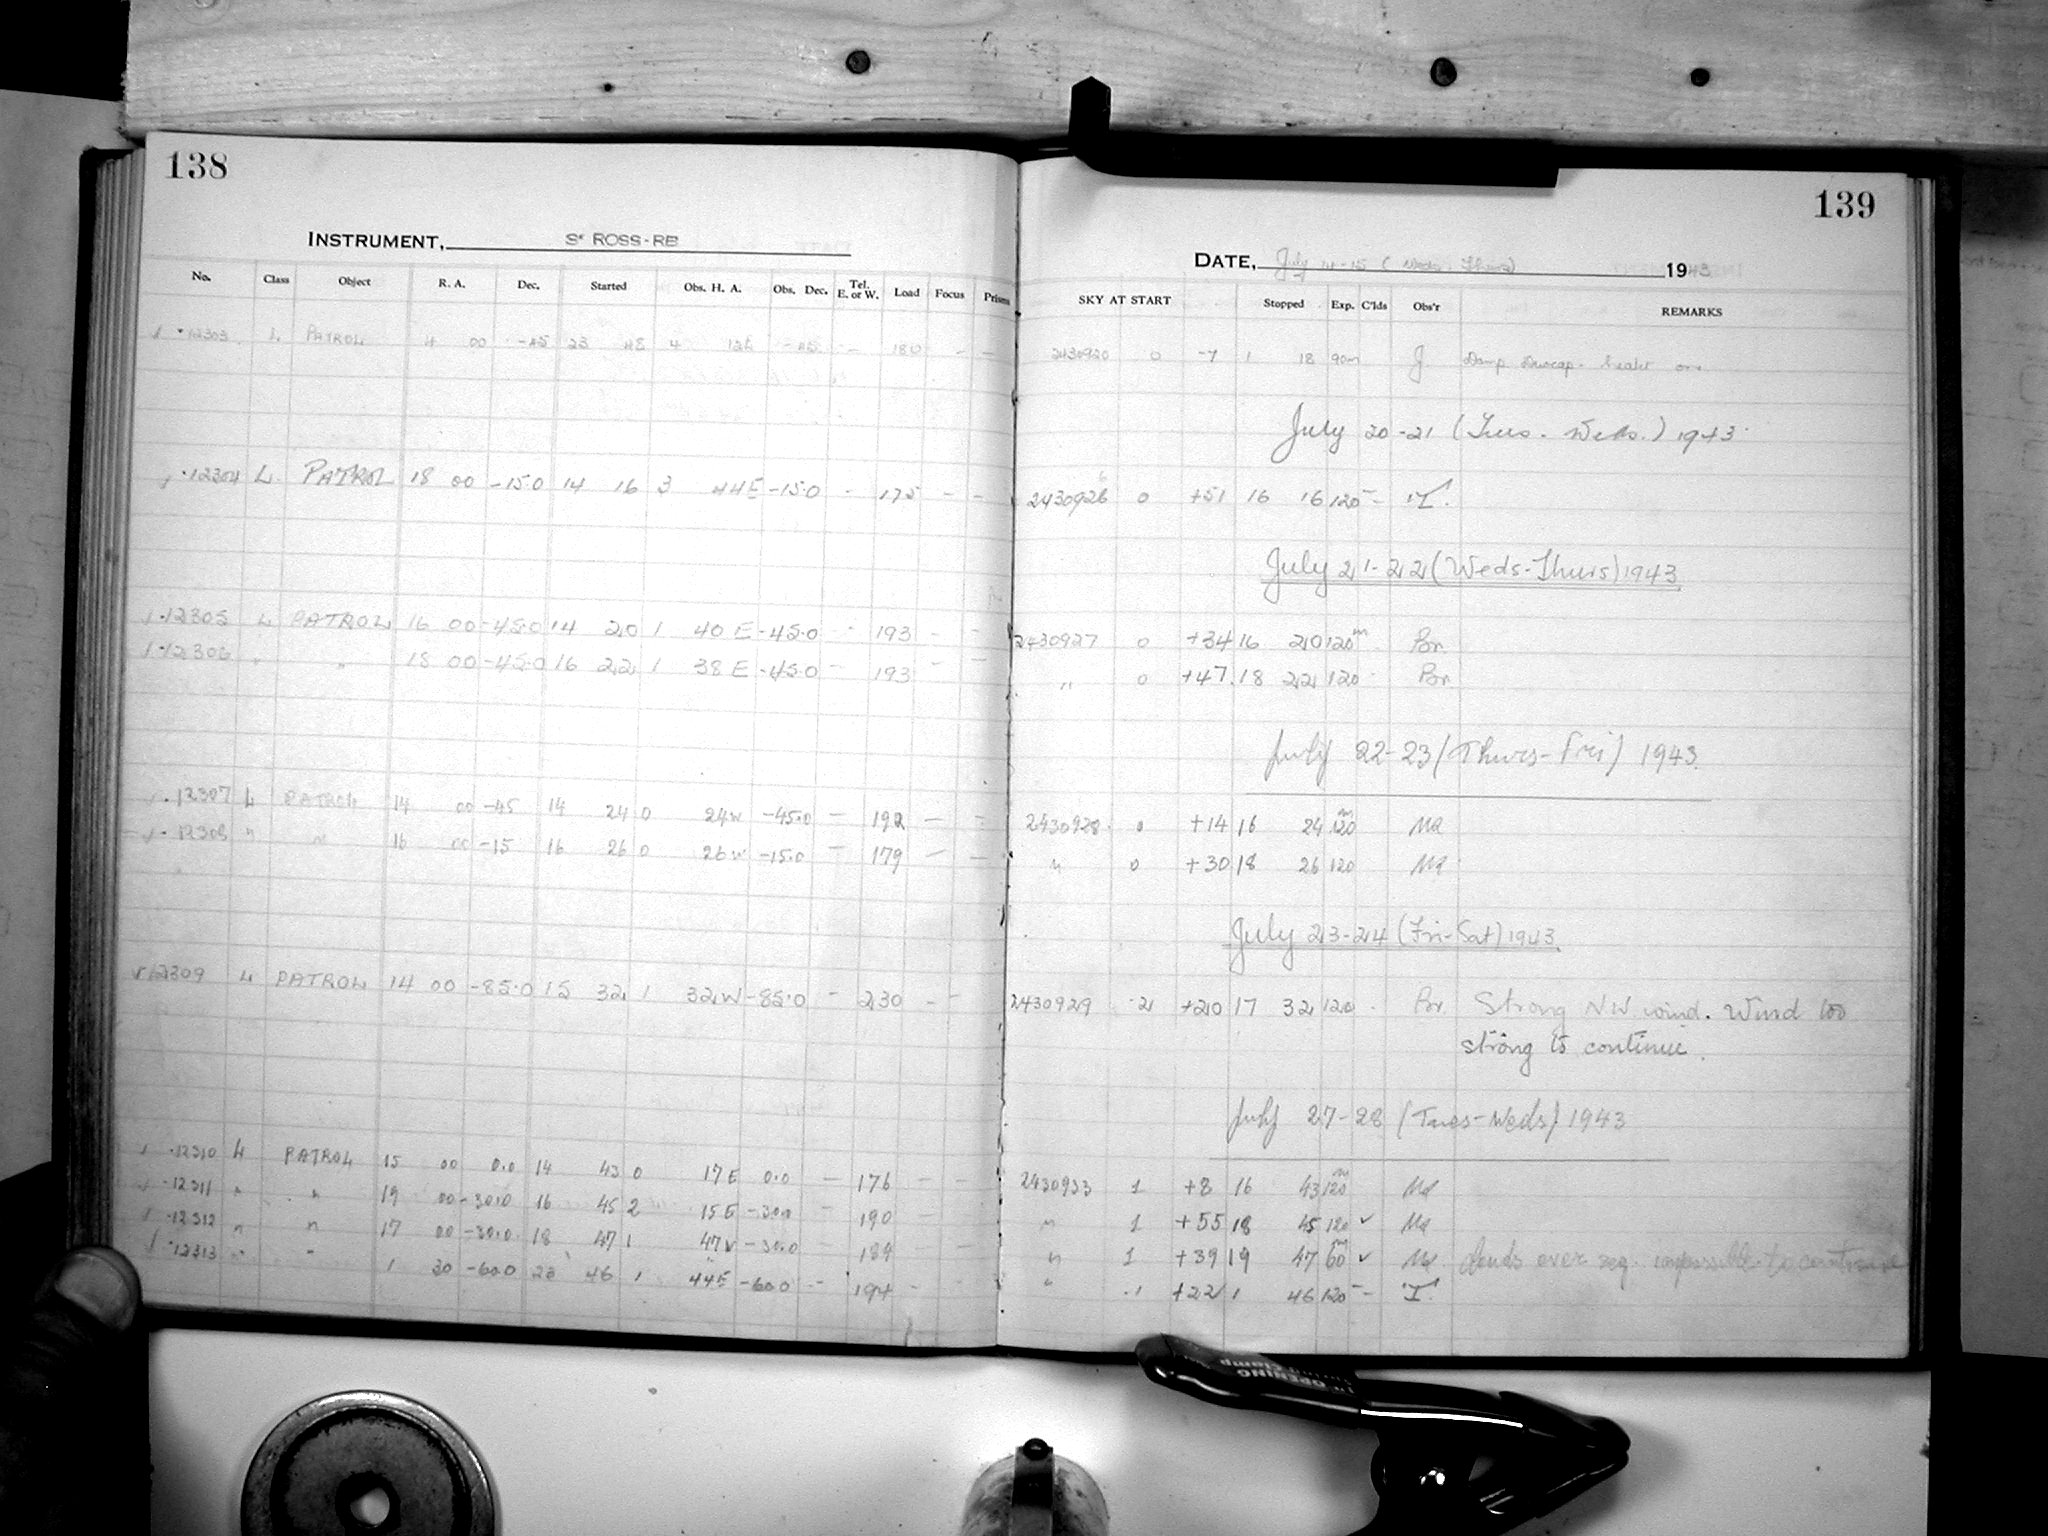 138
INSTRUMENT, Sr ROSS-RB
No. Class Object R. A. Dec. Started Obs. H. A. Obs. Dec. Tel. E. or W. Load Focus Prism
12303 L PATROL 4 00 -45 23 48 4 12E -45 - 180 - -
12304 L. PATROL 18 00 -15.0 14 16 3 44E -15.0 - 175 - -
12305 L PATROL 16 00 -45.0 14 20 1 40 E -45.0 - 193 - -
12306 " " 18 00 -45.0 16 22 1 38 E -45.0 - 193 - -
12307 L PATROL 14 00 -45 14 24 0 24W -45.0 - 192 - -
12308 " " 16 00 -15 16 26 0 26W -15.0 - 179 - -
12309 L PATROL 14 00 -85.0 15 32 1 32W -85.0 - 230 - -
12310 L PATROL 15 00 0.0 14 43 0 17E 0.0 - 176 - -
12311 " " 19 00 -30.0 16 45 2 15E -30.0 - 190 -
12312 " " 17 00 -30.0 18 47 1 47W -30.0 - 189 - -
12313 " " 1 30 -60.0 23 46 1 44E -60.0 - 194 - -
139
DATE, July 14-15 (Weds. Thurs) 1943
SKY AT START Stopped Exp. C'lds Obs'r REMARKS
2430920 0 -7 1 18 90m J. Damp Dewcap. Heater on.
July 20-21 (Tues. Weds.) 1943
2430926 6 0 +51 16 16 120 -
July 21-22 (Weds-Thurs) 1943
2430927 0 +34 16 20 120m Bn.
" 0 +47 18 22 120 Bn.
July 22-23 (Thurs-Fri) 1943.
2430928 0 +14 16 24 120m Ma
" 0 +30 18 26 120 Ma
July 23-24 (Fri-Sat) 1943
2430929 -2 +20 17 32 120 Bn. Strong NW wind. Wind too
strong to continue.
July 27-28 (Tues-Weds) 1943
2430933 1 +8 16 43 120m Ma
" 1 +55 18 45 120 ✓ Ma
" 1 +39 19 47 60m ✓ Ma Clouds over reg. impossible to continue
" 1 +22 1 46 120 -
OPENING